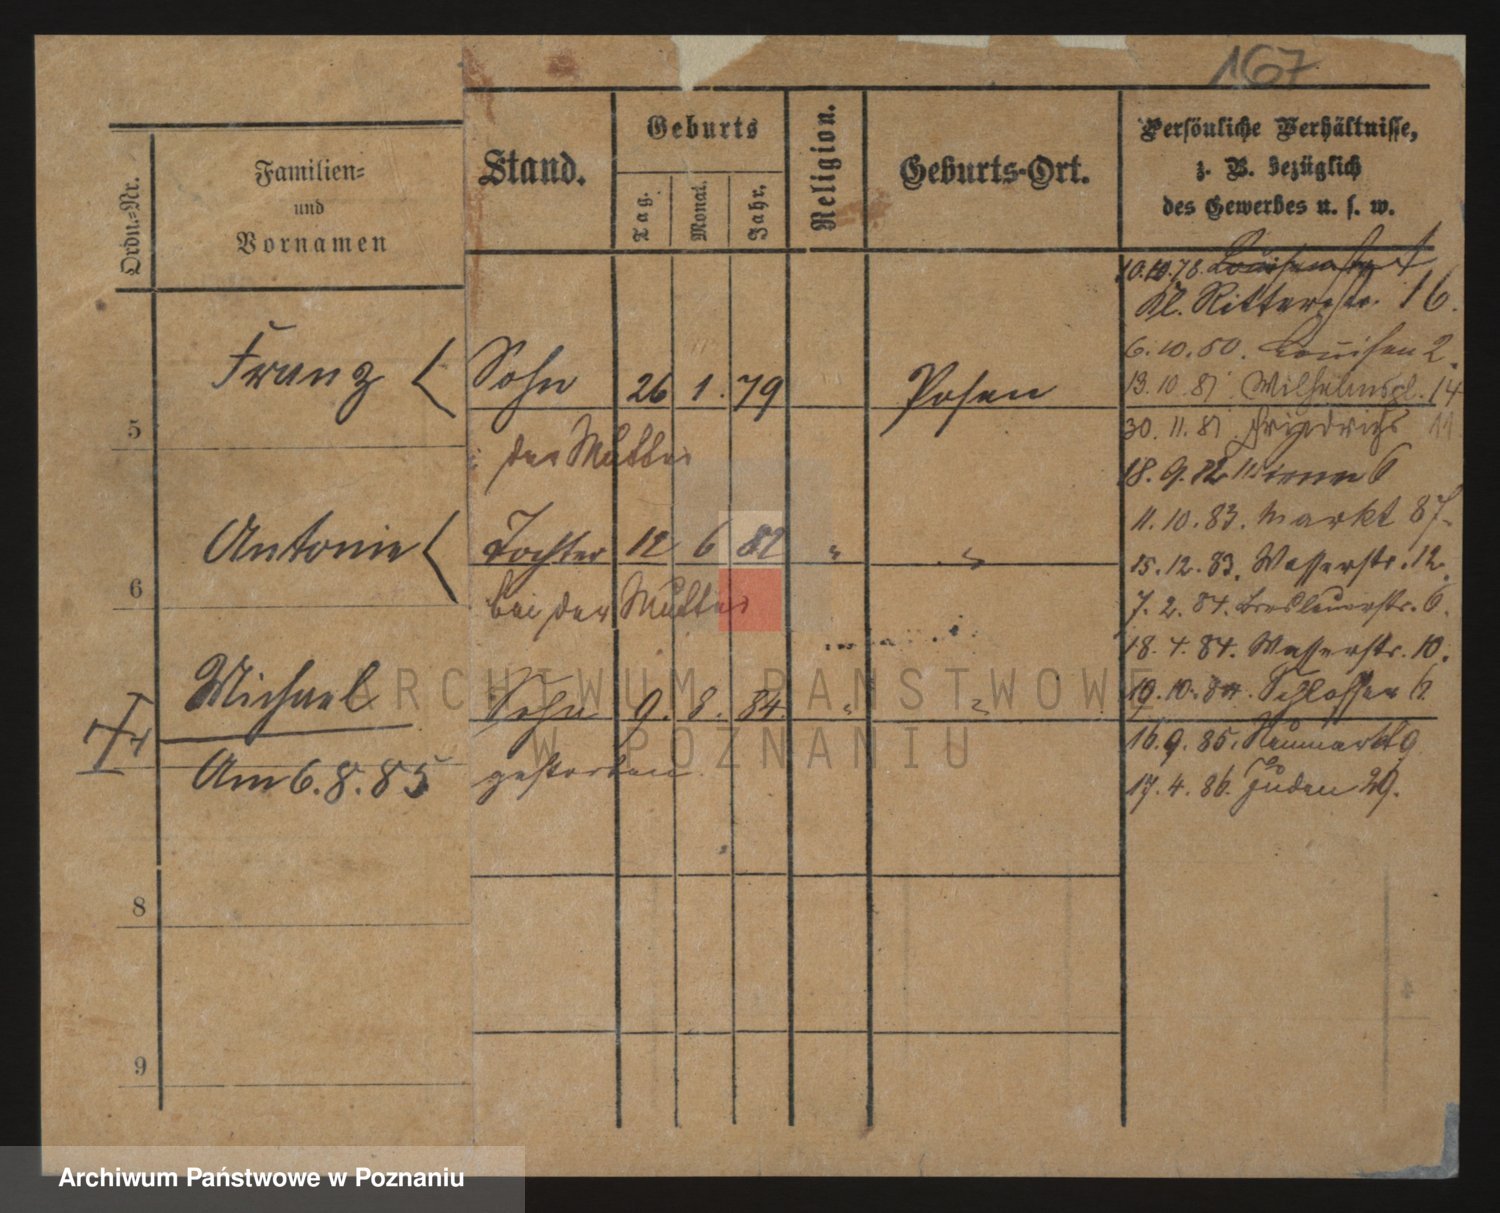 167
Ordn.-Nr.
Familien-
und
Vornamen
Stand.
Geburts
Tag.
Monat.
Jahr.
Religion.
Geburts-Ort.
Persönliche Verhältnisse,
z. B. bezüglich
des Gewerbes u. s. w.
10.10.78.
Kl. Ritterstr. 16.
6.10.80. Louisen 2.
13.10.81 Wilhelmspl. 14
5 Franz Sohn 26 1. 79 Posen
der Mutter
30.11.81 Friedrichs 11
18.9.82 Wienn 6
11.10.83. Markt 87.
6 Antonie Tochter 12 6 82 " "
bei der Mutter
15.12.83. Wasserstr. 12.
7.2.84. Breslauerstr. 6.
18.4.84. Wasserstr. 10.
Michael Sohn 9. 8. 84. " "
19.10.84. Schlosser 6.
Am 6.8.85 gestorben.
16.9.85. Neumarkt 9
17.4.86. Juden 29.
8
9
ARCHIWUM PAŃSTWOWE
W POZNANIU
Archiwum Państwowe w Poznaniu